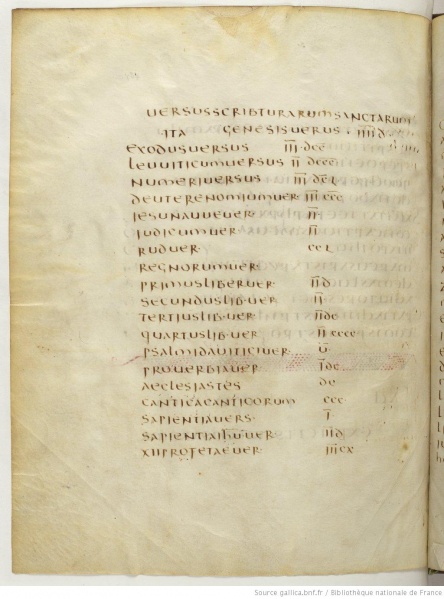 UERSUS SCRIBTURARUM SANCTARUM
ITA GENESIS UERSUS IIIID
EXODUS UERSUS III DCC
LEUUITICUM UERSUS II DCCC
NUMERI UERSUS III DCL
DEUTERENOMIUM UER. III CCC
IESU NAUUE UER. II
IUDICUM UER. II
RUD UER. CCL
REGNORUM UER.
PRIMUS LIBER UER. IID
SECUNDUS LIB. UER. II
TERTIUS LIB. UER. IIDC
QUARTUS LIB. UER. IICCCC
PSALMI DAUITICI UER. U
PROUERBIA UER. IDC
AECLESIASTES DC
CANTICA CANTICORUM CCC
SAPIENTIA UERS. I
SAPIENTIA IHU UER. IID
XII PROFETAE UER. IIICX
Source gallica.bnf.fr / Bibliothèque nationale de France